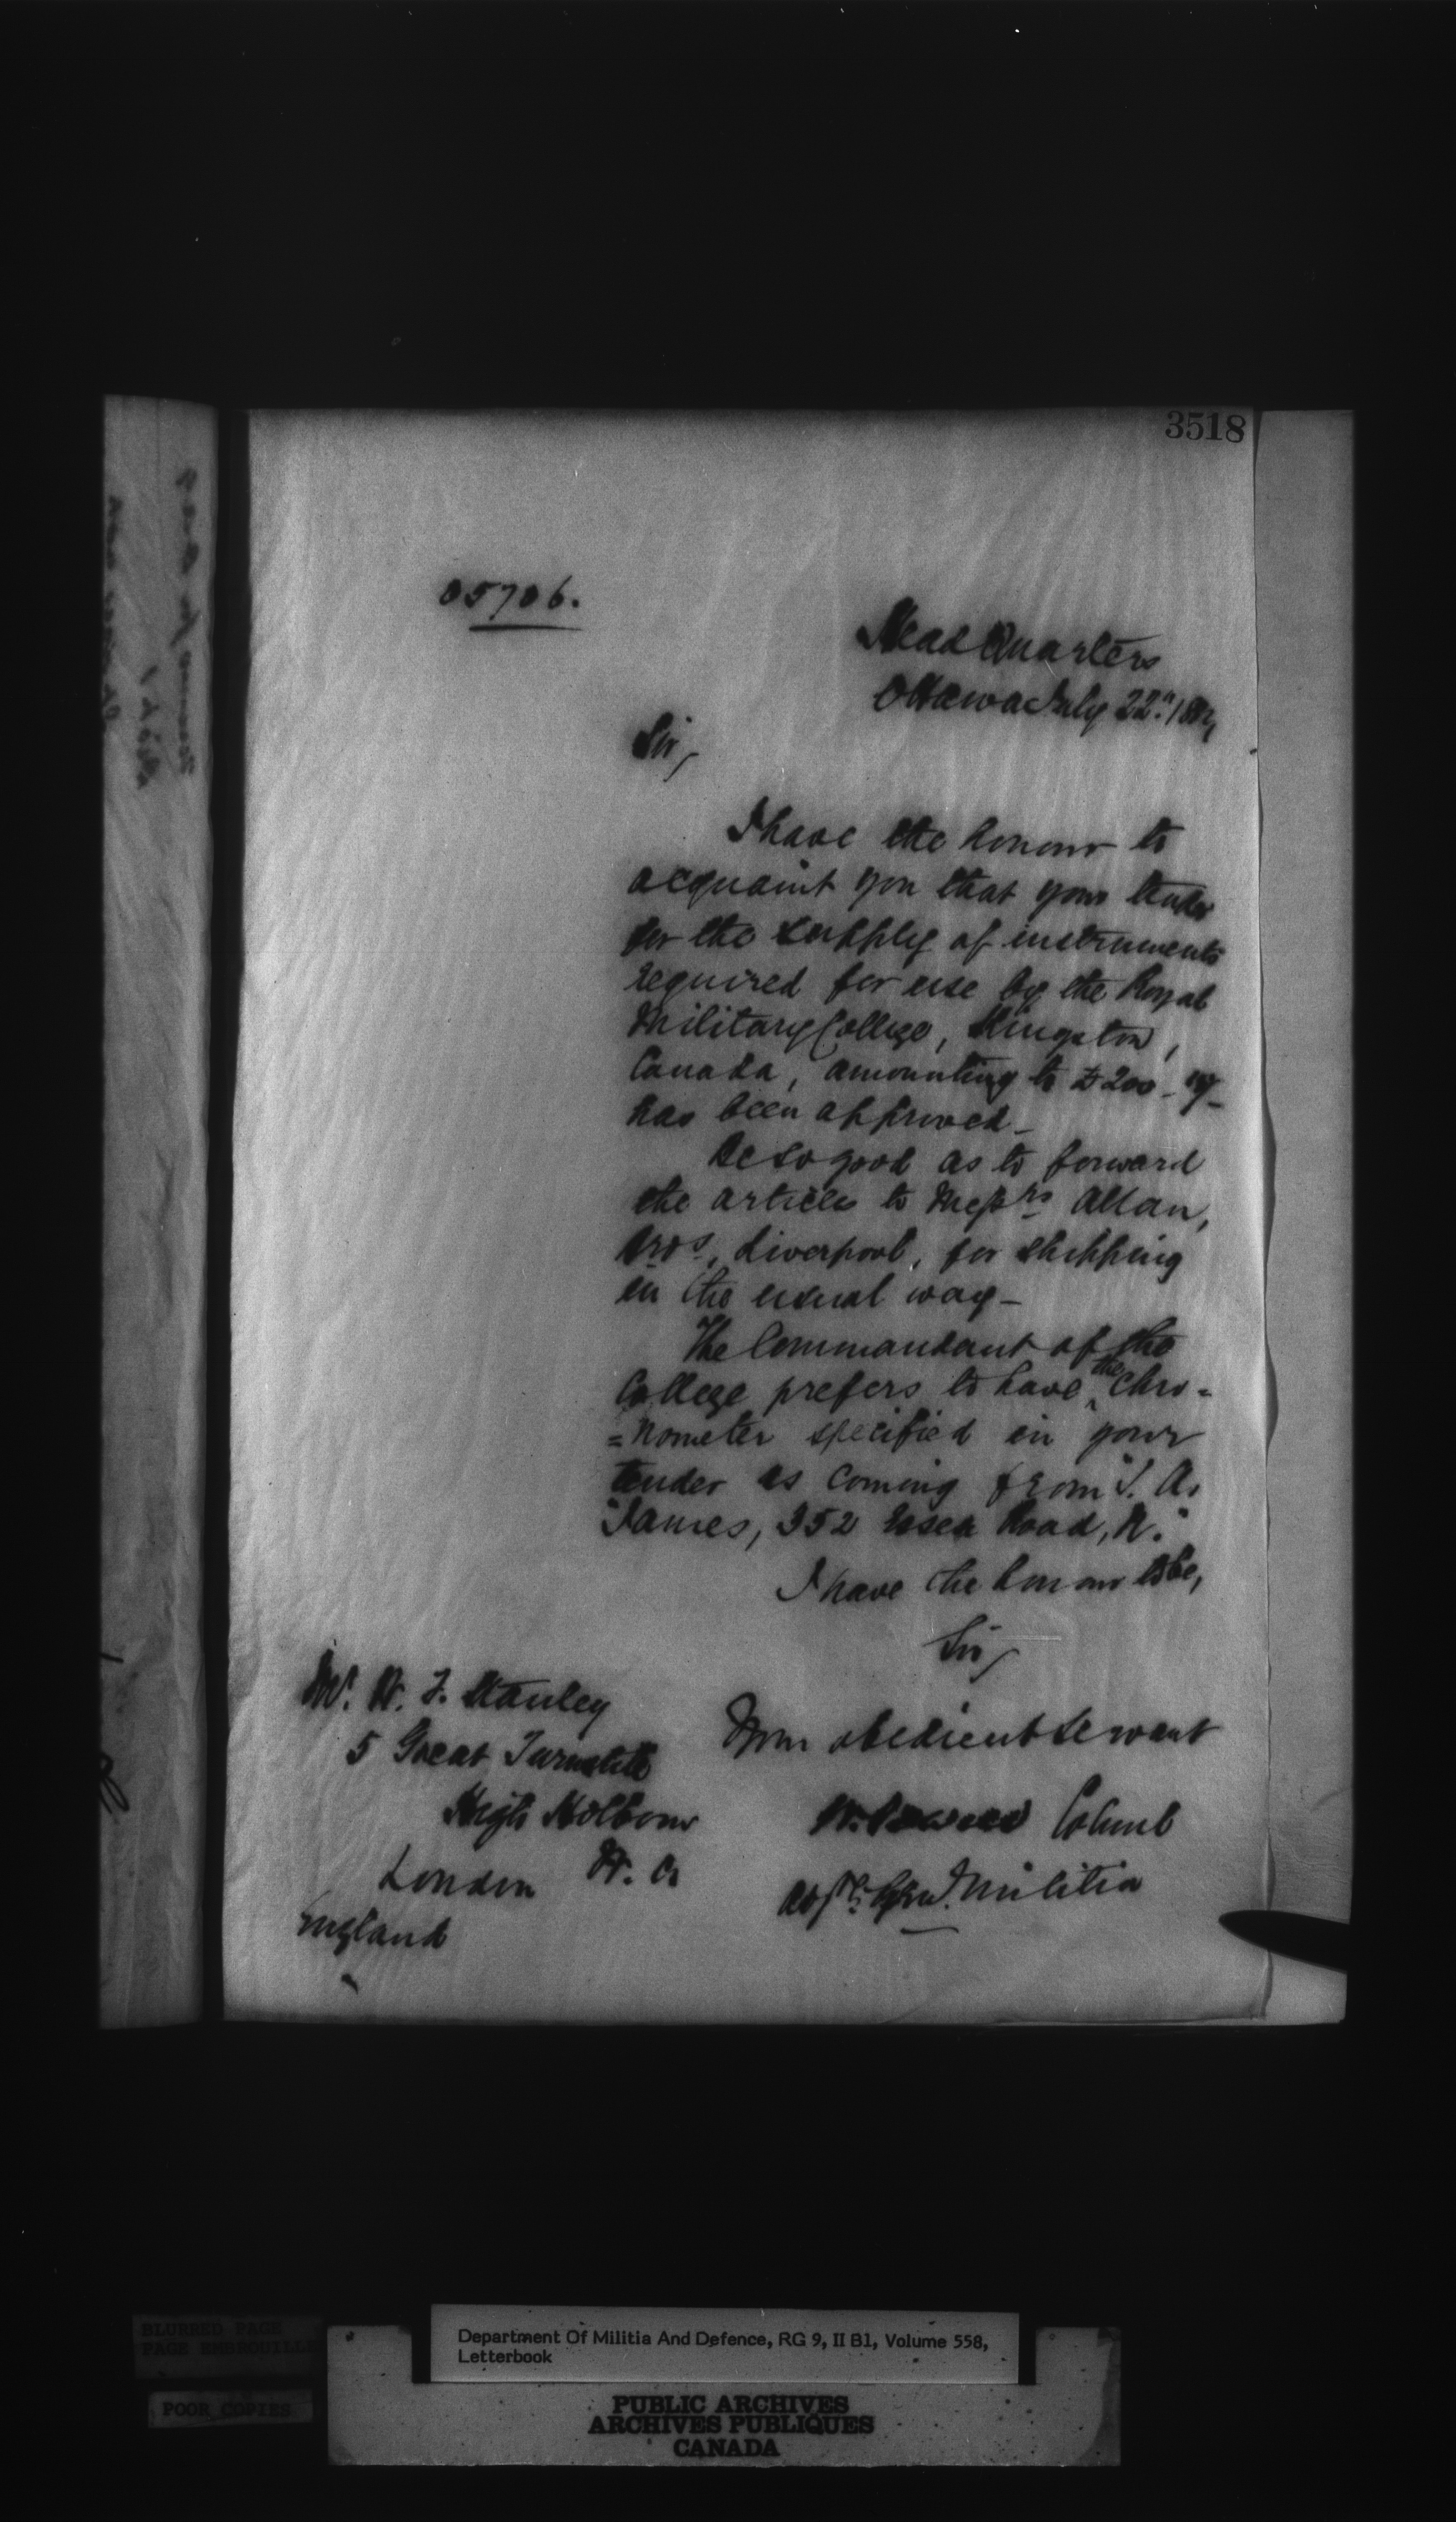 3518
05706.
Head Quarters
Ottawa July 22ⁿᵈ 188
Sir,
I have the honour to
acquaint you that your tender
for the supply of instruments
required for use by the Royal
Military College, Kingston,
Canada, amounting to £200
has been approved_
Be so good as to forward
the articles to Messʳˢ Allan,
Bros, Liverpool, for shipping
in the usual way_
The Commandant of the
College prefers to have the chro=
=nometer specified in your
tender as coming from "S. A.
"James, 352 Essex Road, N."
I have the honour to be,
Sir,
Your obedient servant
W. Powell Colonel
Adjᵗ Genˡ Militia
Mr. W. F. Stanley
5 Great Turnstile
High Holborn
London W. C.
England
BLURRED PAGE
PAGE EMBROUILLE
POOR COPIES
Department Of Militia And Defence, RG 9, II B1, Volume 558,
Letterbook
PUBLIC ARCHIVES
ARCHIVES PUBLIQUES
CANADA